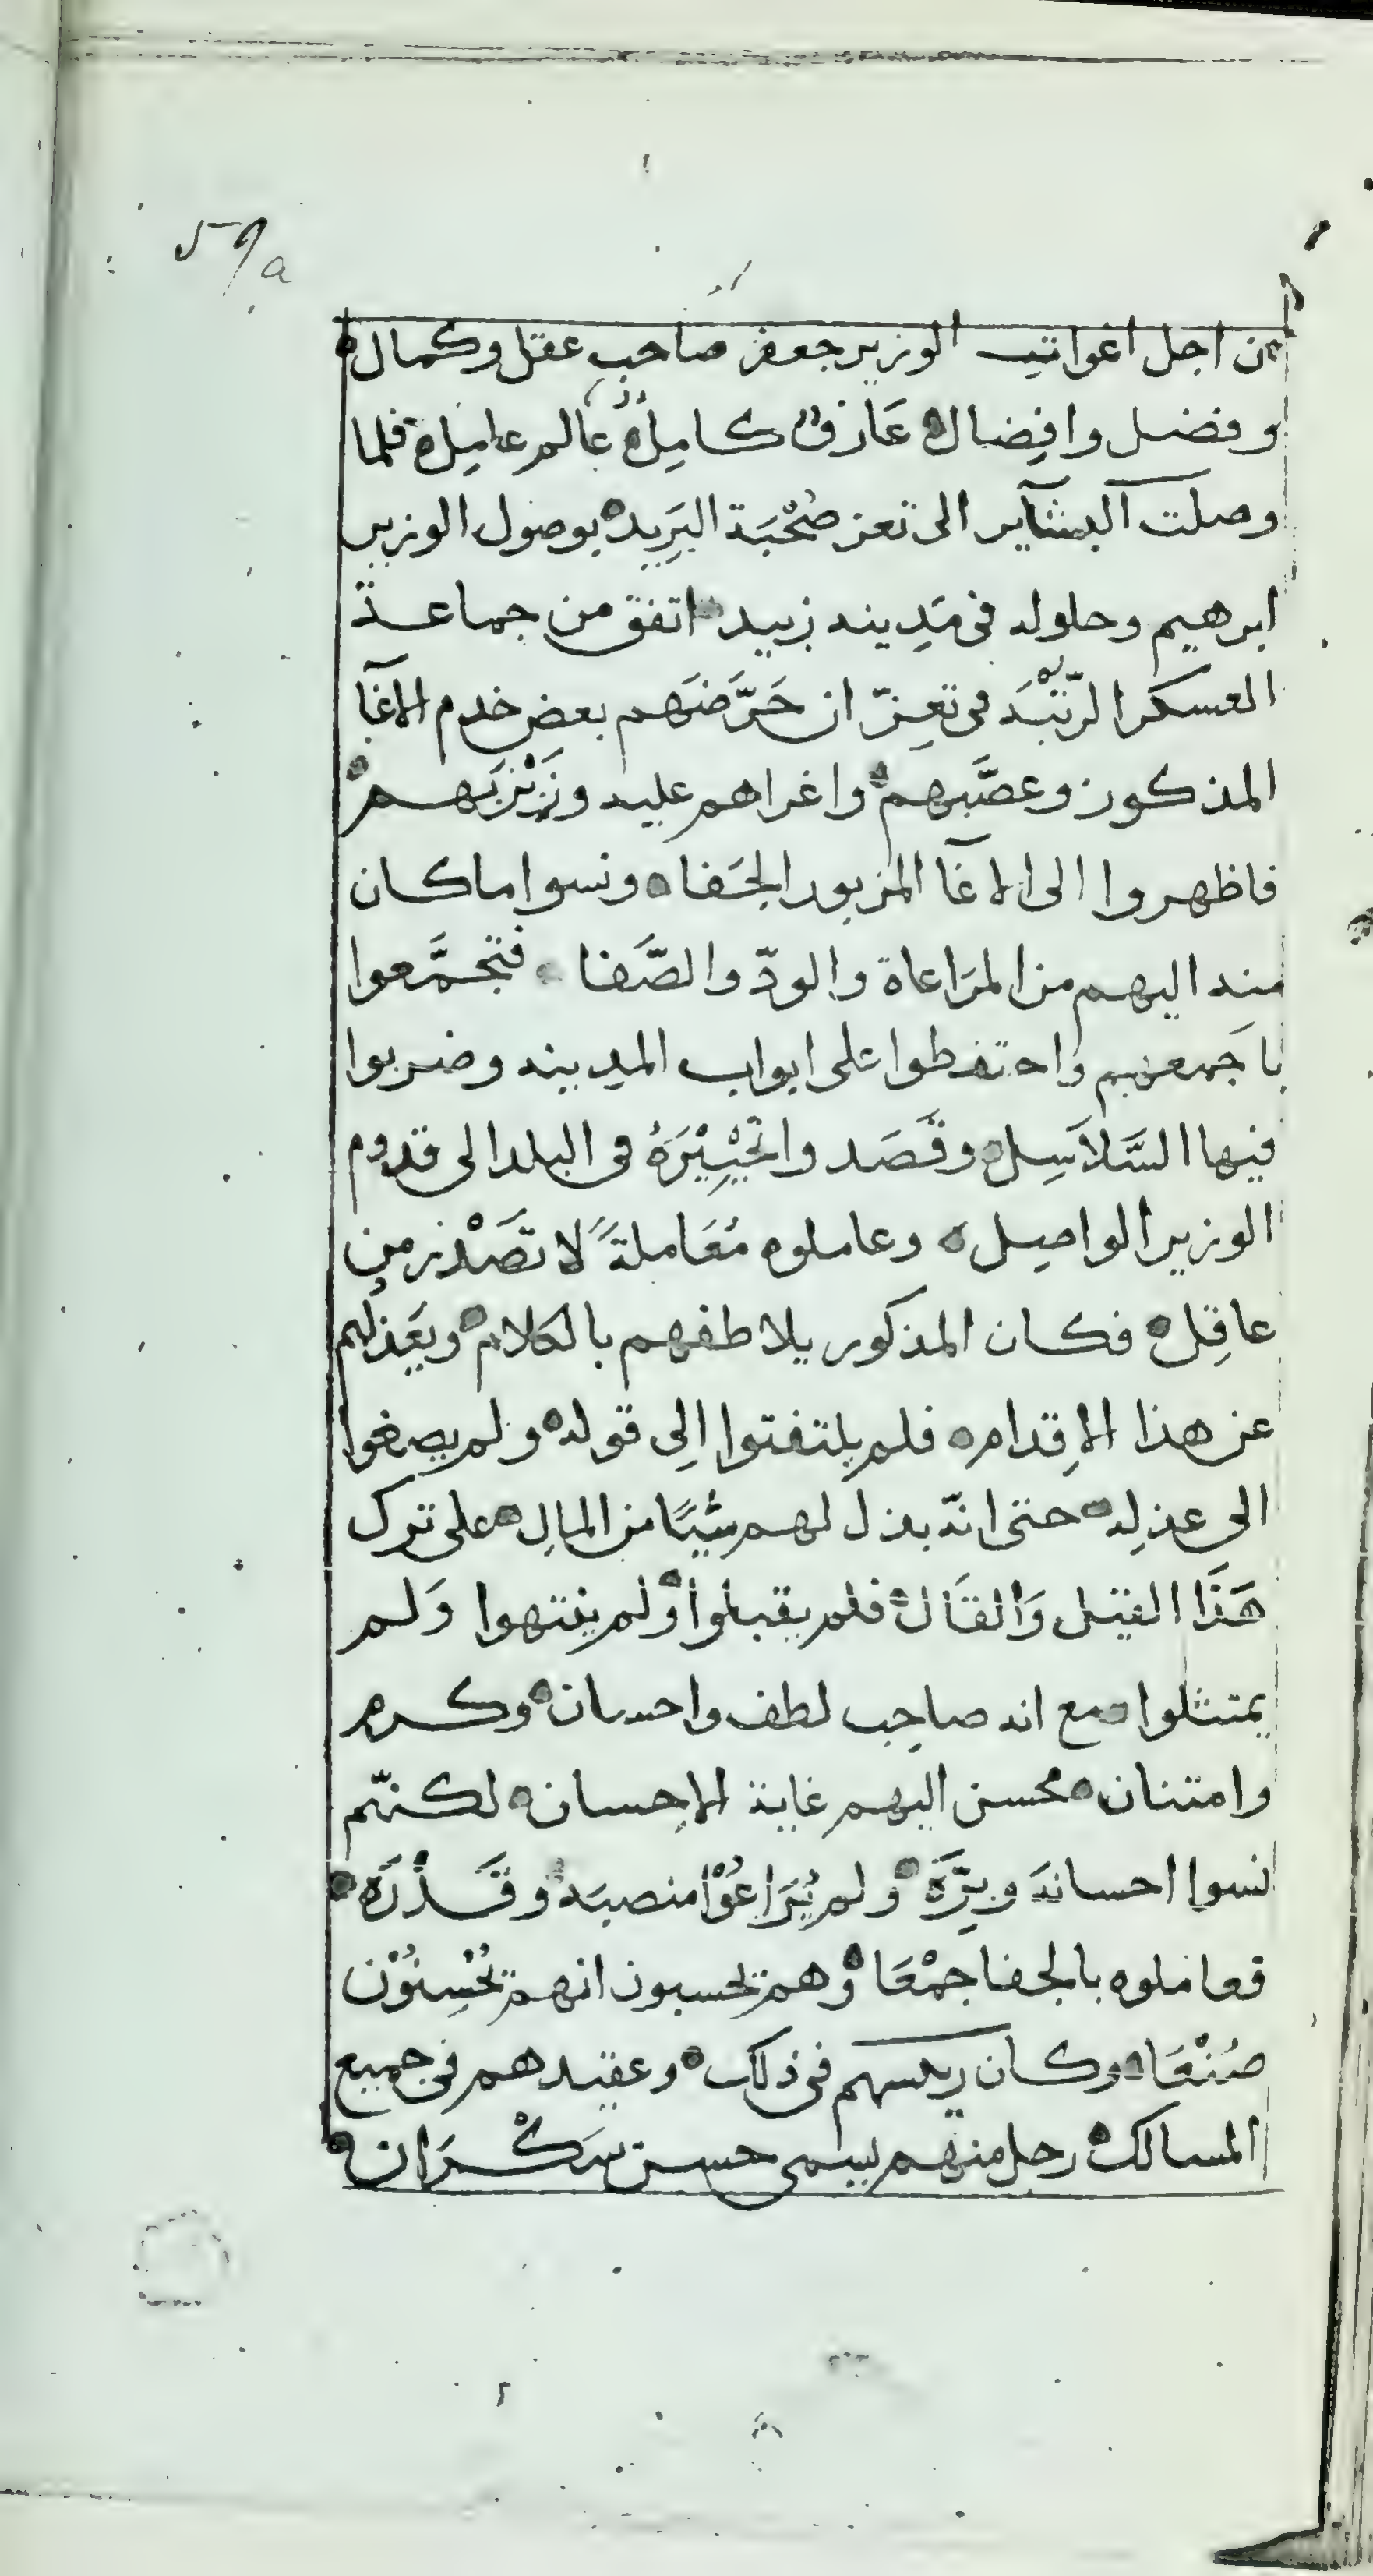 59/a
من اجل اغوات الوزير جعفر صاحب عقل وكمال
وفضل وافِضال عَارف كامِل عالم عامِل فلما
وصلت البشآير الى تعز صُحْبَة البَرِيد بوصول الوزير
ابرهيم وحلوله فى مَدِينه زبيد اتفق من جماعة
العسكر الرّتْبَه فى تعِزّ ان حَرَّضَهم بعض خدم الاغآ
المذكور وعصَّبهم واغراهم عليه
فاظهروا الى الاغآ المزبور الجَفا ونسوا ما كان
منه اليهم من المرَاعاة والودّ والصَّفا فتجمَّعوا
باجَمعهم واحتفطوا على ابواب المدينه وضربوا
فيها السَّلاَسِل وقَصَدوا فى البلد الى قدوم
الوزير الواصِل وعاملوه مُعَاملةً لا تصَدْر من
عاقِل فكان المذكور يلاطفهم بالكلام ويَعذلهم
عن هذا الاِقدام فلم يلتفتوا اِلى قوله ولم يصغوا
الى عذلِه حتى انّه بذل لهم شيًا من المالِ على ترك
هَذَا القيل وَالقَال فلم يقبلوا ولم ينتهوا وَلم
يمتثلوا مع انه صاحِب لطف واحسان وكرم
وامتنان محسن اليهم غاية الاِحسان لكنّهم
نسوا احسانهَ وبِرَّه ولم يُرَاعُوْا منصبَه وقَدْرَه
فعاملوه بالجفا جمْعَا وهم يحسبون انهم يُحْسِنُوْن
صُنْعَا وكان ريسهم فى ذلك وعقيدهم فى جميع
المسالك رجل منهم يسمى حسن سَكْرَان